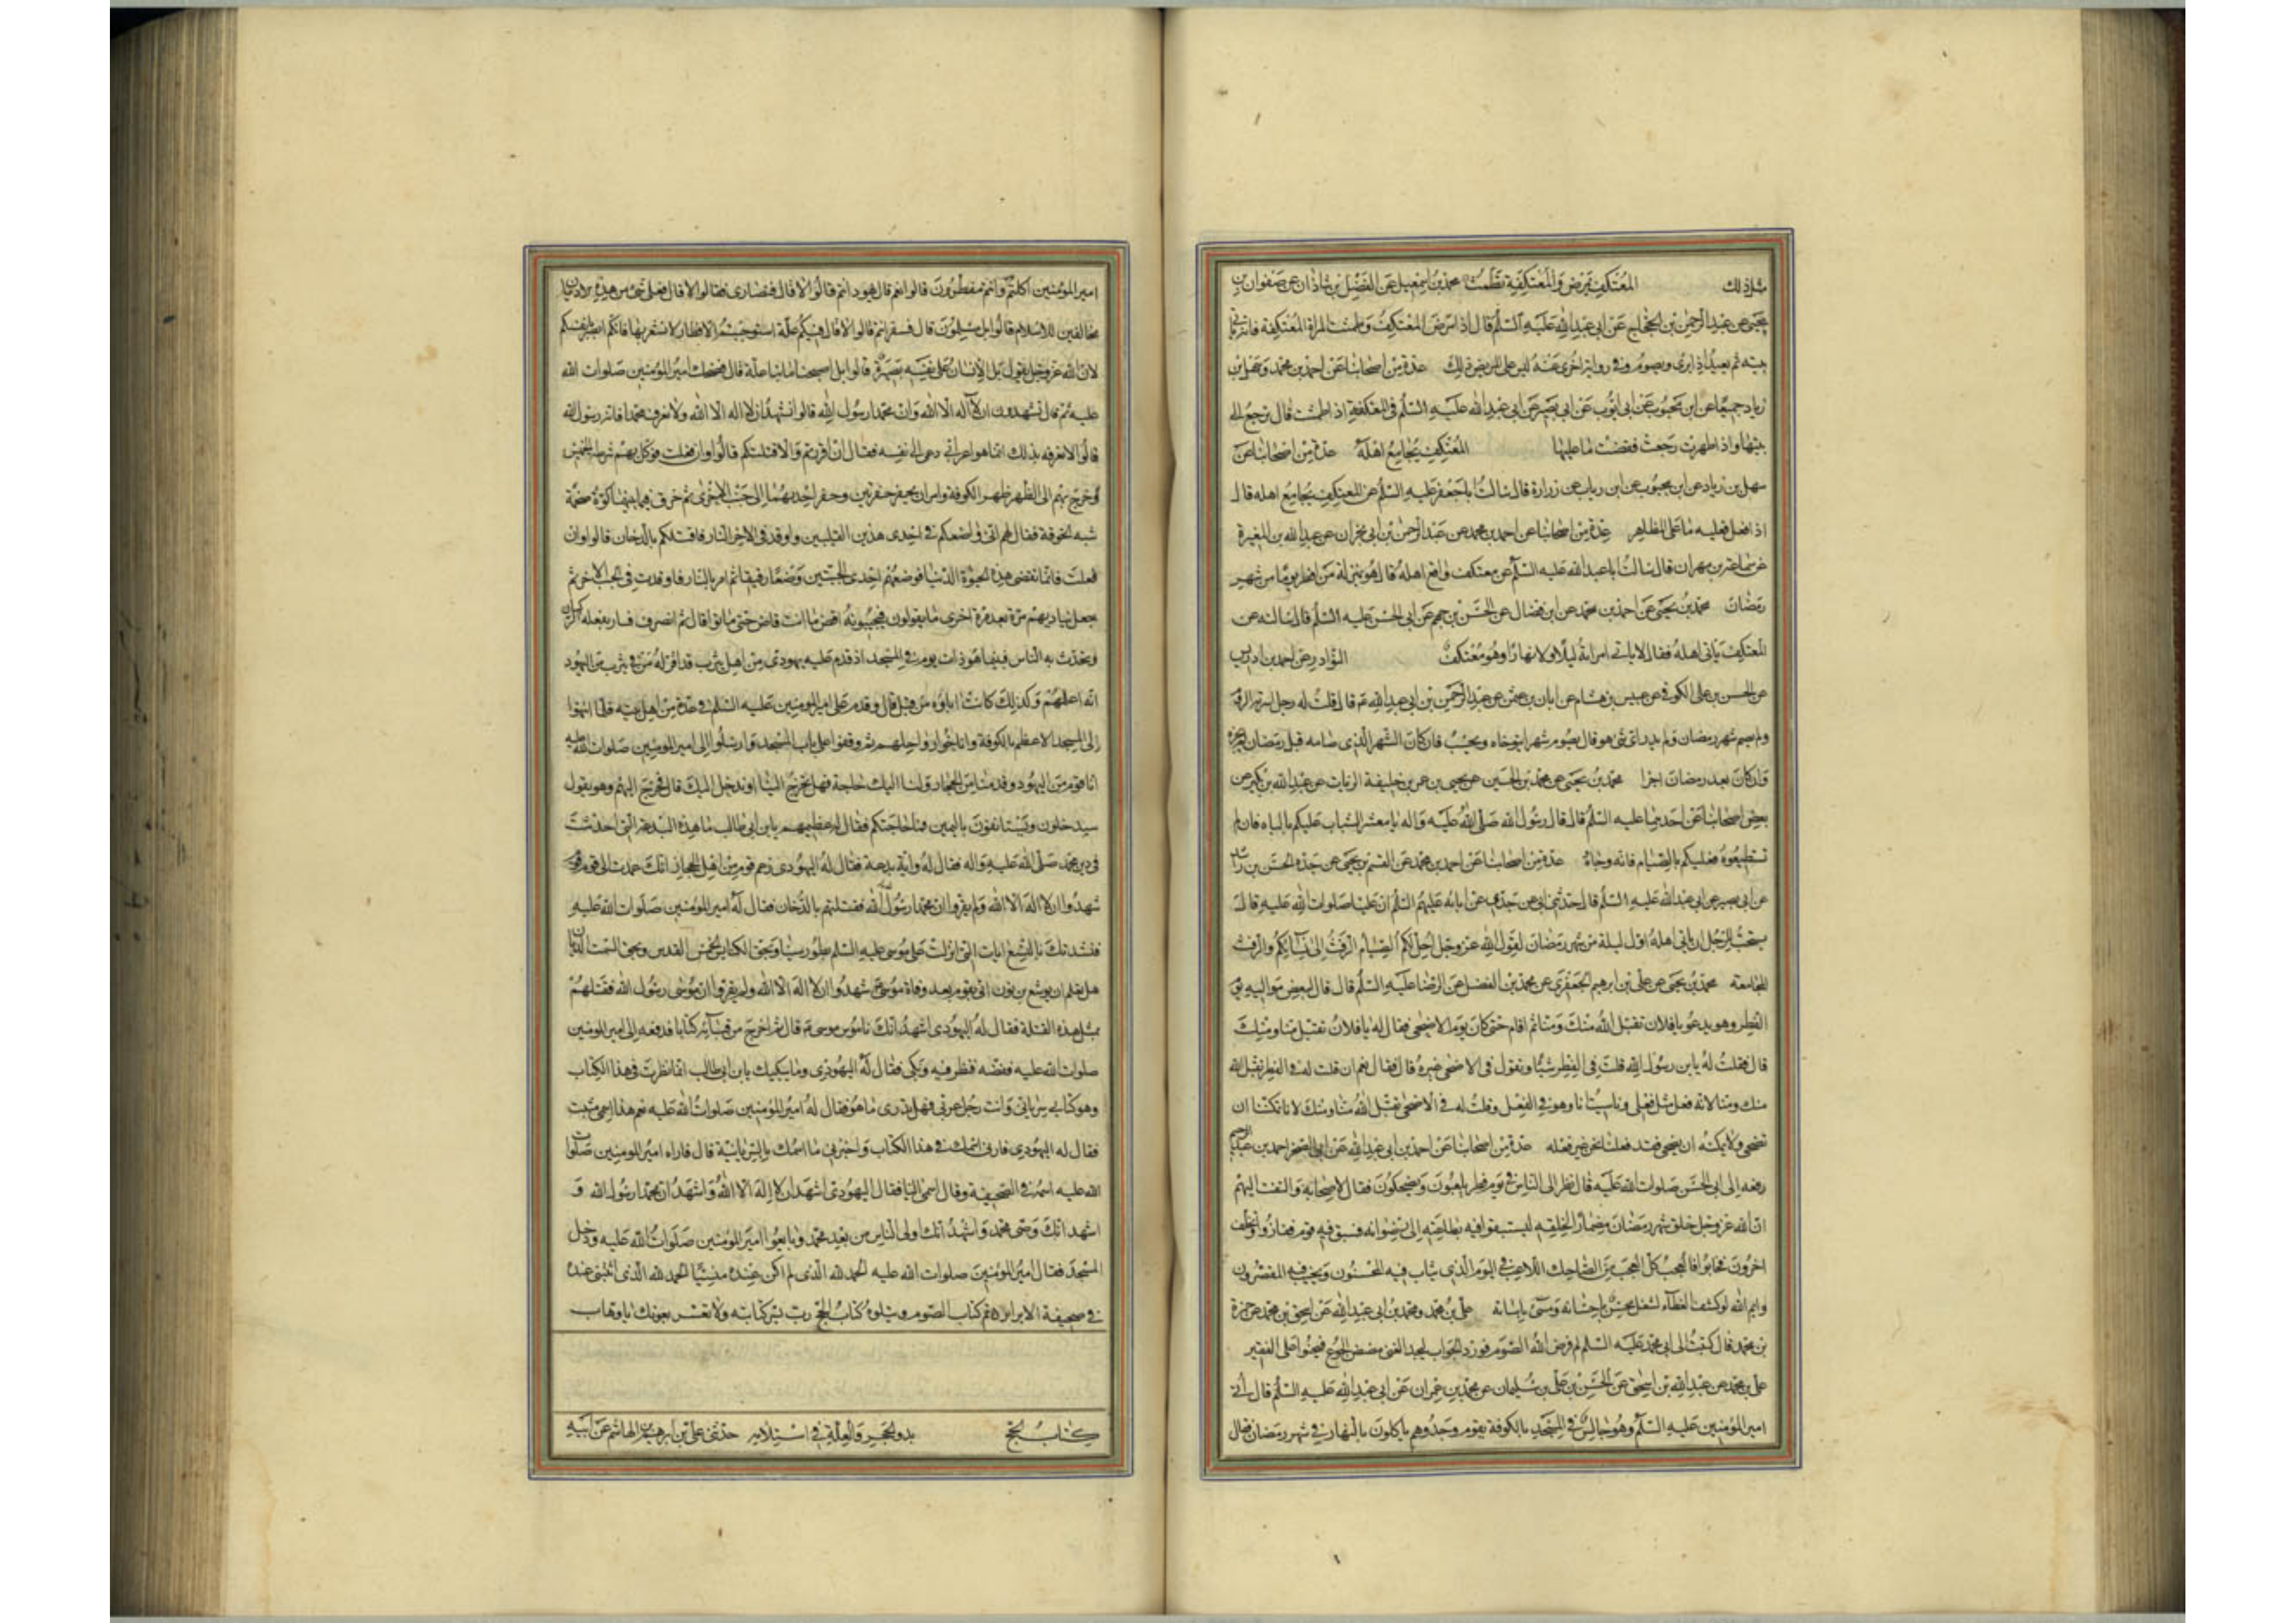 مثل ذلك المعتكف يمرض والمعتكفة تطمث محمد بن اسمعيل عن الفضل بن شاذان عن صفوان بن
يحيى عن عبد الرحمن بن الحجاج عن ابي عبد الله عليه السلم قال اذا مرض المعتكف وطمثت المراة المعتكفة فانه ياتي
بيته ثم يعيد اذا برئ ويصوم وفي رواية اخرى عنه ليس على المريض ذلك عدة من اصحابنا عن احمد بن محمد وسهل بن
زياد جميعا عن ابن محبوب عن ابي ايوب عن ابي بصير عن ابي عبد الله عليه السلم في المعتكفة اذا طمثت قال ترجع الى
بيتها واذا طهرت رجعت فقضت ما عليها المعتكف يجامع اهله عدة من اصحابنا عن
سهل بن زياد عن ابن محبوب عن ابن رباب عن زرارة قال سالت ابا جعفر عليه السلم عن المعتكف يجامع اهله قال
اذا فعل فعليه ما على المظاهر عدة من اصحابنا عن احمد بن محمد عن عبد الرحمن بن ابي نجران عن عبد الله بن المغيرة
عن سماعة بن مهران قال سالت ابا عبد الله عليه السلم عن معتكف واقع اهله قال هو بمنزلة من افطر يوما من شهر
رمضان محمد بن يحيى عن احمد بن محمد عن ابن فضال عن الحسن بن جهم عن ابي الحسن عليه السلم قال سالته عن
المعتكف ياتي اهله فقال لا ياتي امراته ليلا ولا نهارا وهو معتكف النوادر عن احمد بن ادريس
عن الحسن بن علي الكوفي عن عبيس بن هشام عن ابان بن عثمن عن عبد الرحمن بن ابي عبد الله ع قال قلت له رجل اسرته الروم
ولم يصم شهر رمضان ولم يدر اي شهر هو قال يصوم شهرا يتوخاه ويحسب فان كان الشهر الذي صامه قبل رمضان لم يجزه
وان كان بعد رمضان اجزا محمد بن يحيى عن محمد بن الحسين عن يحيى بن عمر بن خليفة الزيات عن عبد الله بن بكير عن
بعض اصحابنا عن احدهما عليه السلم قال قال رسول الله صلى الله عليه واله يا معشر الشباب عليكم بالباه فان لم
تستطيعوه فعليكم بالصيام فانه وجاه عدة من اصحابنا عن احمد بن محمد عن القسم بن يحيى عن جده الحسن بن راشد
عن ابي بصير عن ابي عبد الله عليه السلم قال حدثني ابي عن جدي عن ابائه عليهم السلم ان عليا صلوات الله عليه قال
يستحب للرجل ان ياتي اهله اول ليلة من شهر رمضان لقول الله عز وجل احل لكم ليلة الصيام الرفث الى نسائكم والرفث
المجامعة محمد بن يحيى عن علي بن ابرهيم الجعفري عن محمد بن الفضل عن الرضا عليه السلم قال قال لبعض مواليه يوم
الفطر وهو يدعو يا فلان تقبل الله منك ومنا ثم اقام حتى كان يوم الاضحى فقال له يا فلان تقبل منا ومنك
قال فقلت له يا بن رسول الله قلت في الفطر شيئا وتقول في الاضحى غيره قال فقال نعم ان قلت له في الفطر تقبل الله
منك ومنا لانه فعل مثل فعلي وناسبت انا وهو في الفعل وقلت له في الاضحى تقبل الله منا ومنك لانا تمكننا ان
نضحي ولا يمكنه ان يضحي فقد فعلنا نحن غير فعله عدة من اصحابنا عن احمد بن ابي عبد الله عن ابي الصخر احمد بن عبد الرحيم
رفعه الى ابي الحسن صلوات الله عليه قال نظر الى الناس في يوم فطر يلعبون ويضحكون فقال لاصحابه والتفت اليهم
ان الله عز وجل خلق شهر رمضان مضمارا لخلقه ليستبقوا فيه بطاعته الى رضوانه فسبق فيه قوم ففازوا وتخلف
اخرون فخابوا فالعجب كل العجب من الضاحك اللاعب في اليوم الذي يثاب فيه المحسنون ويخيب فيه المقصرون
وايم الله لو كشف الغطاء لشغل محسن باحسانه ومسئ باساته علي بن محمد ومحمد بن ابي عبد الله عن اسحق بن محمد عن حمزة
بن محمد قال كتبت الى ابي محمد عليه السلم لم فرض الله الصوم فورد الجواب ليجد الغني مضض الجوع فيحنوا على الفقير
علي بن محمد عن عبد الله بن اسحق عن الحسن بن علي بن سليمان عن محمد بن عمران عن ابي عبد الله عليه السلم قال اتي
امير المؤمنين عليه السلم وهو جالس في المسجد بالكوفة بقوم وجدوهم ياكلون بالنهار في شهر رمضان فقال
امير المؤمنين اكلتم وانتم مفطرون قالوا نعم قال يهود انتم قالوا لا قال فنصارى فقالوا لا قال فعلى شئ من هذه الاديان
مخالفين للاسلام قالوا بل مسلمون قال فسفر انتم قالوا لا قال فيكم علة استوجبتم الافطار لا نشعر بها فانكم ابصر بانفسكم
لان الله عز وجل يقول بل الانسان على نفسه بصيرة قالوا بل اصبحنا ما بنا علة قال فضحك امير المؤمنين صلوات الله
عليه ثم قال تشهدون ان لا اله الا الله وان محمدا رسول الله قالوا نشهد ان لا اله الا الله ولا نعرف محمدا قال فانه رسول الله
قالوا لا نعرفه بذلك انما هو اعرابي دعى الى نفسه فقال ان اقررتم والا قتلتكم قالوا وان فعلت فوكل بهم شرطة الخميس
وخرج بهم الى الظهر ظهر الكوفة وامر ان يحفر حفرتين وحفر احديهما الى جنب الاخرى ثم خرق فيما بينهما كوة ضخمة
شبه الخوخة فقال لهم اني واضعكم في احدى هذين القليبين واوقد في الاخر النار فاقتلكم بالدخان قالوا وان
فعلت فانما تقضي هذه الحيوة الدنيا فوضعهم احدى الجبين وضعا رفيقا ثم امر بالنار فاوقدت في الجب الاخر ثم
جعل يناديهم مرة بعد مرة اخرى ما يقولون فيجيبونه اقض ما انت قاض حتى ماتوا قال ثم انصرف فسار بفعله الركبان
وتحدث به الناس فبينما هو ذات يوم في المسجد اذ قدم عليه يهودي من اهل يثرب قد اقر له من في يثرب من اليهود
انه اعلمهم وكذلك كانت اباؤه من قبل قال وقدم على امير المومنين عليه السلم في عدة من اهل بيته فلما انتهوا
الى المسجد الاعظم بالكوفة واناخوا رواحلهم ثم وقفوا على باب المسجد وارسلوا الى امير المومنين صلوات الله عليه
انا قوم من اليهود قدمنا من الحجاز ولنا اليك حاجة فهل تخرج الينا او ندخل اليك قال فخرج اليهم وهو يقول
سيدخلون ويستانفون باليمين فما حاجتكم فقال له عظيمهم يا بن ابي طالب ما هذه البدعة التي احدثت
في دين محمد صلى الله عليه واله فقال له واية بدعة فقال له اليهودي زعم قوم من اهل الحجاز انك عمدت الى قوم
شهدوا ان لا اله الا الله ولم يقروا ان محمدا رسول الله فقتلتهم بالدخان فقال له امير المومنين صلوات الله عليه
فنشدتك بالتسع ايات التي انزلت على موسى عليه السلم بطور سينا وبحق الكنايس الخمس القدس وبحق السمت الديان
هل تعلم ان يوشع بن نون اتي بقوم بعد وفاة موسى ع شهدوا ان لا اله الا الله ولم يقروا ان موسى رسول الله فقتلهم
بمثل هذه القتلة فقال له اليهودي اشهد انك ناموس موسى ع قال ثم اخرج من قبائه كتابا فدفعه الى امير المومنين
صلوات الله عليه ففضه فنظر فيه وبكى فقال له اليهودي وما يبكيك يا بن ابي طالب انما نظرت في هذا الكتاب
وهو كتاب سرياني وانت رجل عربي فهل تدري ما هو فقال له امير المؤمنين صلوات الله عليه نعم هذا اسمي مثبت
فقال له اليهودي فارني اسمك في هذا الكتاب واخبرني ما اسمك بالسريانية قال فاراه امير المومنين صلوات
الله عليه اسمه في الصحيفة وقال اسمي اليا فقال اليهودي اشهد ان لا اله الا الله واشهد ان محمدا رسول الله و
اشهد انك وصي محمد واشهد انك اولى الناس من بعد محمد وبايعوا امير المومنين صلوات الله عليه ودخل
المسجد فقال امير المؤمنين صلوات الله عليه الحمد لله الذي لم اكن عنده منسيا الحمد لله الذي اثبتني عنده
في صحيفة الابرار تم كتاب الصوم ويتلوه كتاب الحج رب يسر كتابه ولا تعسر بعونك يا وهاب
كتاب الحج بدو الحجر والعلة في استلامه حدثني علي بن ابرهيم بن هاشم عن ابيه